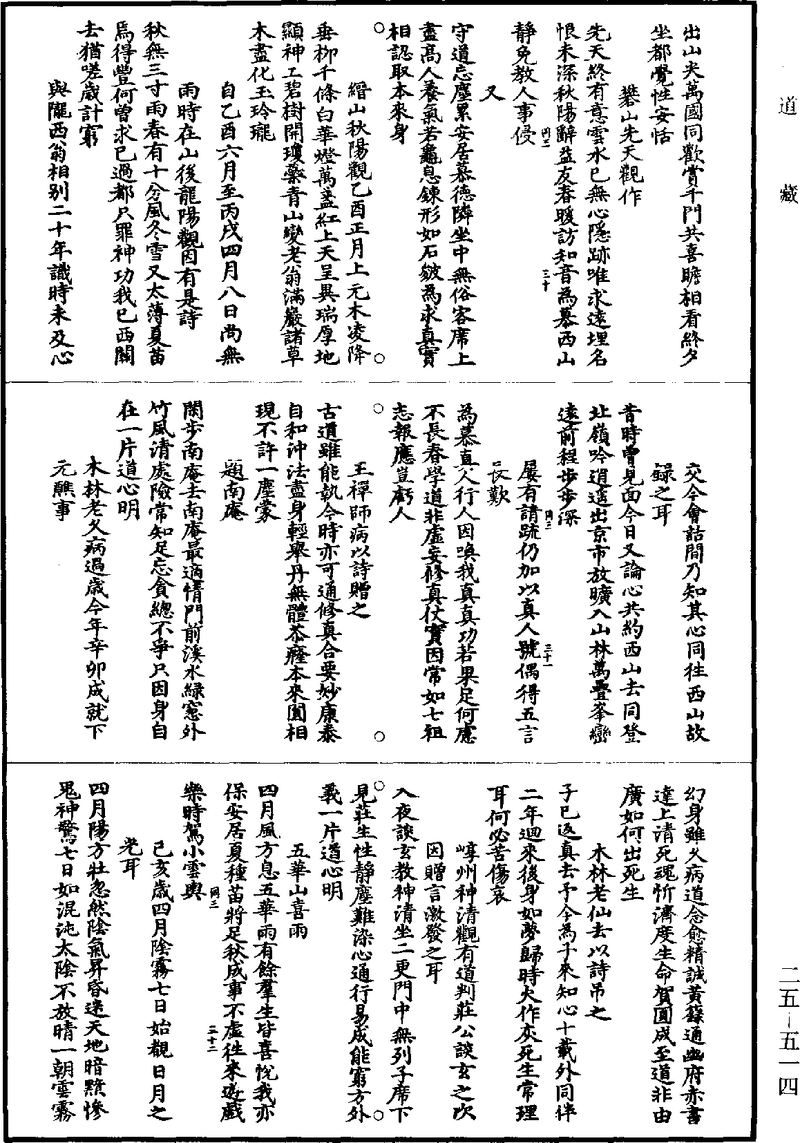 道藏
出山尖萬國同歡賞千門共喜瞻相看終夕
坐都覺性安恬
礬山先天觀作
先天終有意雲水已無心隱跡唯求遠埋名
恨未深秋陽辭益友春暖訪知音為慕西山
靜免教人事侵
又
守道忘塵累安居慕德隣坐中無俗客席上
盡高人養氣若龜息鍊形如石皴為求真實
相認取本來身
縉山秋陽觀乙酉正月上元木凌降
垂柳千條白華燈萬盞紅上天呈異瑞厚地
顯神工碧樹開瓊藥青山變老翁滿巖諸草
木盡化玉玲瓏
自乙酉六月至丙戌四月八日尚無
雨時在山後龍陽觀因有是詩
秋無三寸雨春有十分風冬雪又太薄夏苗
焉得豐何曾求已過都只罪神功我已西關
去猶嗟歲計窮
與隴西翁相別二十年識時未及心
交今會話間乃知其心同往西山故
錄之耳
昔時曾見面今日又論心共約西山去同登
北嶺吟逍遥出京市放曠入山林萬疊峯巒
遠前程步步深
屢有請疏仍加以真人號偶得五言
長歎
為慕真人行人因喚我真真功若果足何慮
不長春學道非虛妄修真仗實因常如七祖
志報應豈虧人
王禪師病以詩贈之
古道雖能執今時亦可通修真合要妙康泰
自和沖法盡身輕舉丹無體恭癃本來圓相
現不許一塵蒙
題南庵
閑步南庵去南庵最適情門前溪水綠窻外
竹風清處險常知足忘貪總不爭只因身自
在一片道心明
木林老久病過歲今年辛卯成就下
元醮事
幻身雖久病道念愈精誠黃籙通幽府赤書
達上清死魂忻濟度生命賀圓成至道非由
廣如何出死生
木林老仙去以詩吊之
子已返真去予今為子來知心十載外同伴
二年迴來後身如夢歸時火作灰死生常理
耳何必苦傷哀
崞州神清觀有道判莊公談玄之次
因贈言激發之耳
入夜談玄教神清坐二更門中無列子席下
見莊生性靜塵難染心通行易成能窮方外
義一片道心明
五華山喜雨
四月風方息五華雨有餘羣生皆喜悅我亦
保安居夏種苗將足秋成事不虛往來遊戲
樂時駕小雲輿
己亥歲四月陰霧七日始觀日月之
光耳
四月陽方壯忽然陰氣昇昏迷天地暗黲慘
鬼神驚七日如混沌太陰不放晴一朝雲霧
二五—五一四